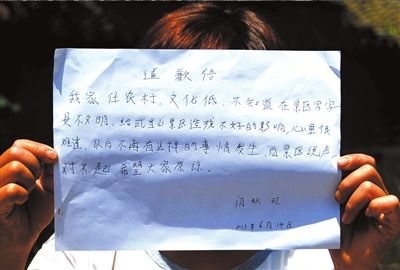 道歉信
我家住农村,文化低,不知道在景区写字
是不文明,给武当山景区造成不好的影响,心里很
难过,以后不再有这样的事情发生,向景区说声
对不起,希望大家原谅。
2013年6月14日